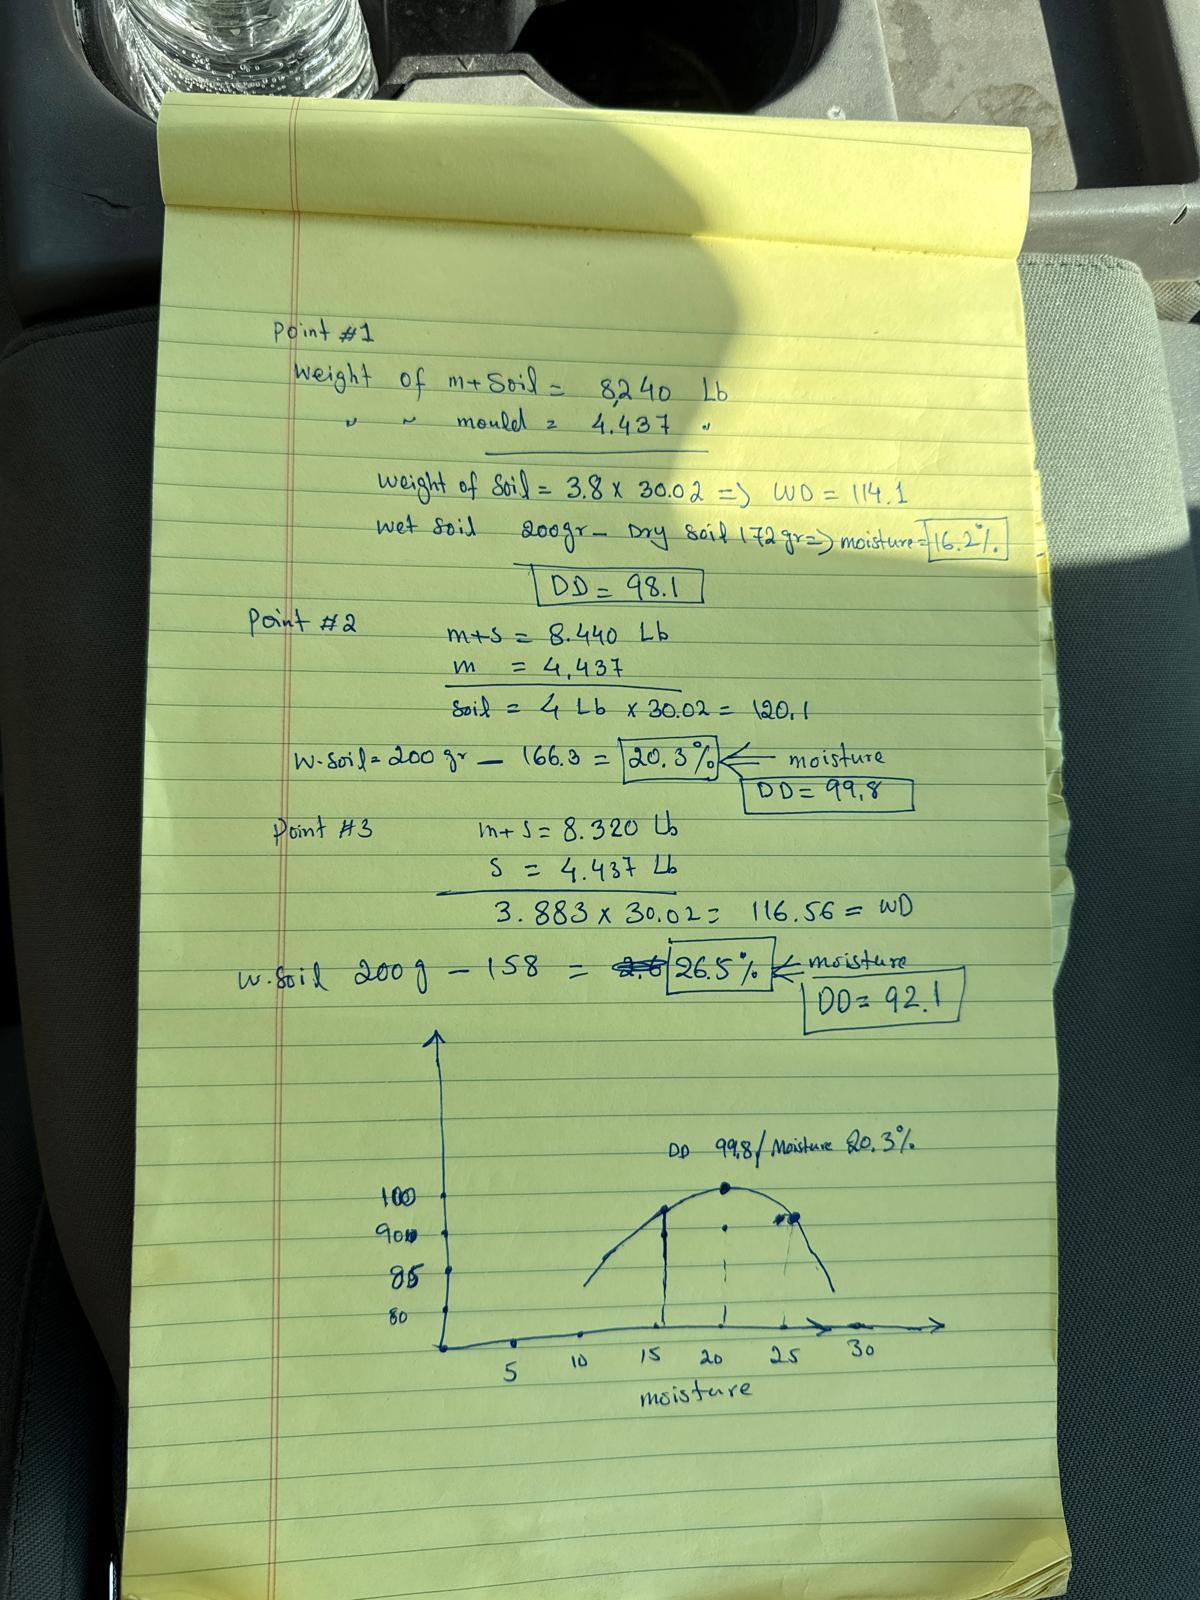 Point #1
Weight of m+Soil = 8,240 Lb
" " mould = 4.437 "
Weight of Soil = 3.8 x 30.02 => WD = 114.1
Wet Soil 200gr - Dry Soil 172gr => moisture = 16.2%
DD = 98.1
Point #2
m+s = 8.440 Lb
m = 4,437
Soil = 4 Lb x 30.02 = 120.1
W.Soil = 200 gr - 166.3 = 20.3% ← moisture
DD = 99,8
Point #3
m+s = 8.320 Lb
s = 4.437 Lb
3.883 x 30.02 = 116.56 = WD
W.Soil 200g - 158 = 26.5% ← moisture
DD = 92.1
DD 99,8/Moisture 20.3%
100
90
85
80
5 10 15 20 25 30
moisture